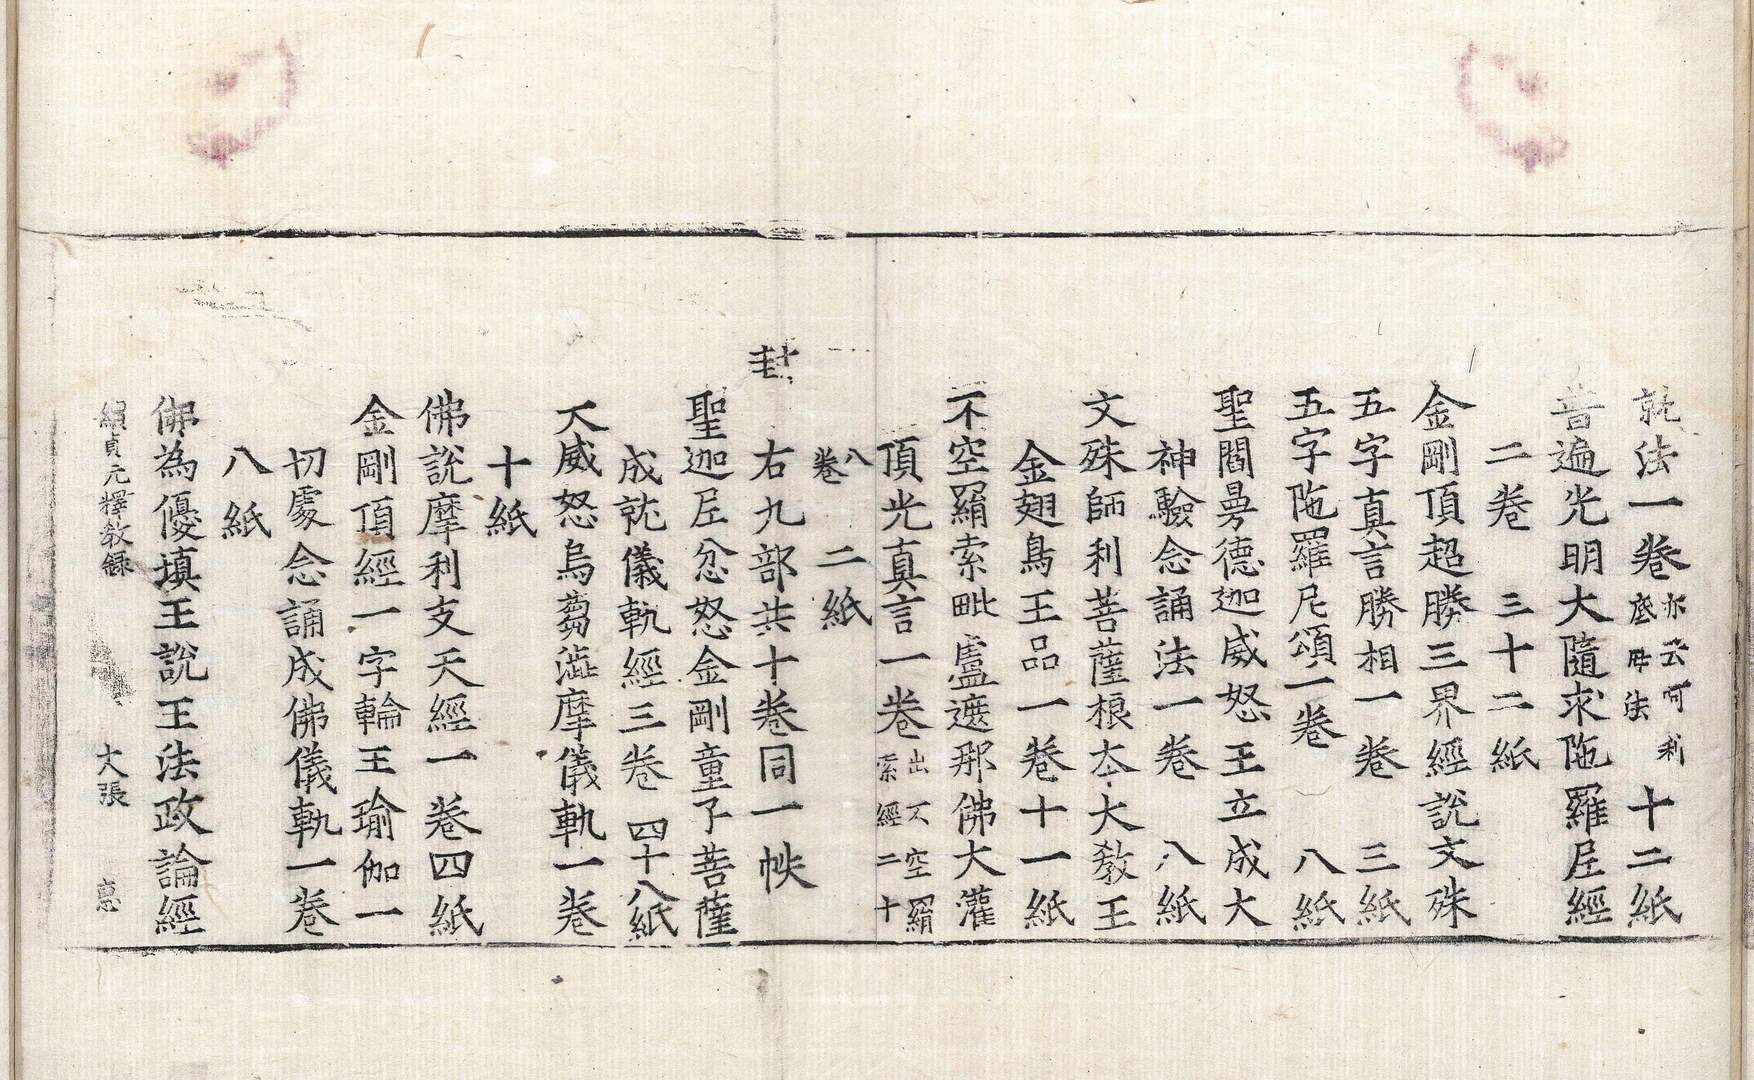 就法一卷亦云訶利底母法 十二紙
普遍光明大隨求陁羅尼經
二卷 三十二紙
金剛頂超勝三界經說文殊
五字真言勝相一卷 三紙
五字陁羅尼頌一卷 八紙
聖閻曼德迦威怒王立成大
神驗念誦法一卷 八紙
文殊師利菩薩根本大教王
金翅鳥王品一卷十一紙
不空羂索毗盧遮那佛大灌
頂光真言一卷出不空羂索經二十
八卷 二紙
右九部共十卷同一帙
聖迦尼忿怒金剛童子菩薩
成就儀軌經三卷 四十八紙
大威怒烏蒭澁摩儀軌一卷
十紙
佛說摩利支天經一卷四紙
金剛頂經一字輪王瑜伽一
切處念誦成佛儀軌一卷
八紙
佛為優填王說王法政論經
續貞元釋教錄 大張 惠